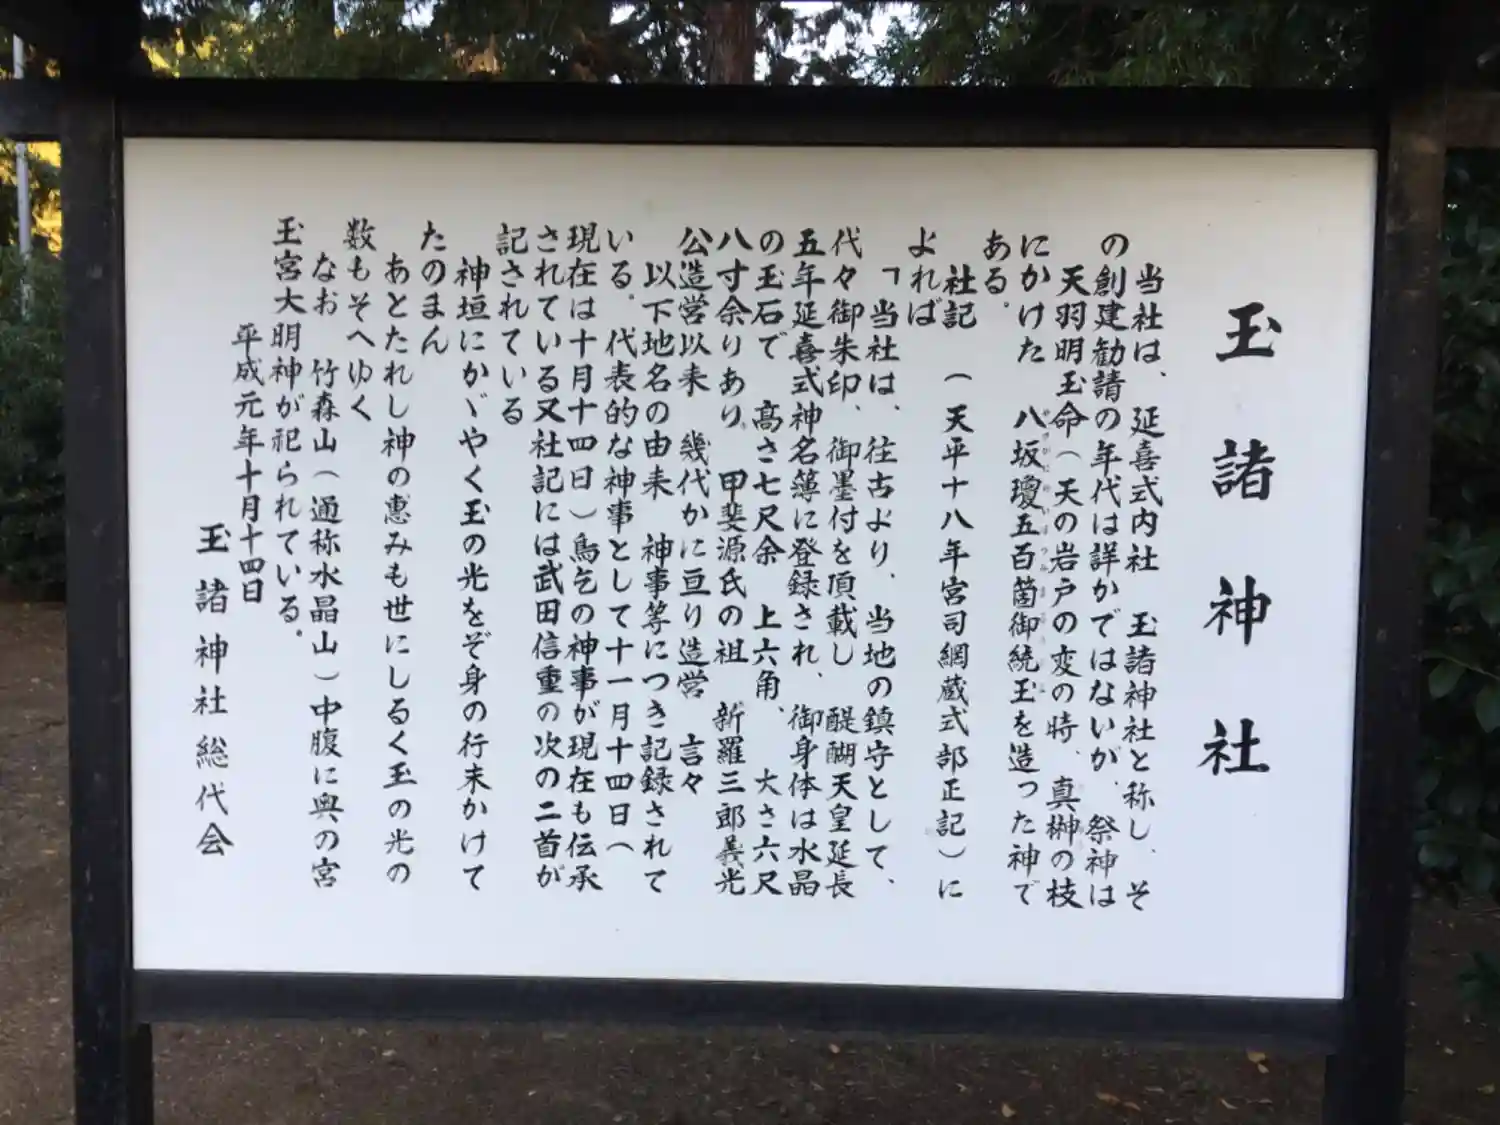 玉諸神社
当社は、延喜式内社 玉諸神社と称し、そ
の創建勧請の年代は詳かではないが、祭神は
天羽明玉命(天の岩戸の変の時、真榊の枝
にかけた 八坂瓊五百箇御統玉を造った神で
ある。
社記 (天平十八年宮司網蔵式部正記)に
よれば
「当社は、往古より、当地の鎮守として、
代々御朱印、御墨付を頂載し 醍醐天皇延長
五年延喜式神名簿に登録され、御身体は水晶
の玉石で 高さ七尺余 上六角、大さ六尺
八寸余りあり、甲斐源氏の祖 新羅三郎義光
公造営以来 幾代かに亘り造営 言々
以下地名の由来 神事等につき記録されて
いる。代表的な神事として十一月十四日(
現在は十月十四日)鳥乞の神事が現在も伝承
されている又社記には武田信重の次の二首が
記されている
神垣にかゞやく玉の光をぞ身の行末かけて
たのまん
あとたれし神の恵みも世にしるく玉の光の
数もそへゆく
なお 竹森山(通称水晶山)中腹に奥の宮
玉宮大明神が祀られている。
平成元年十月十四日
玉諸神社総代会